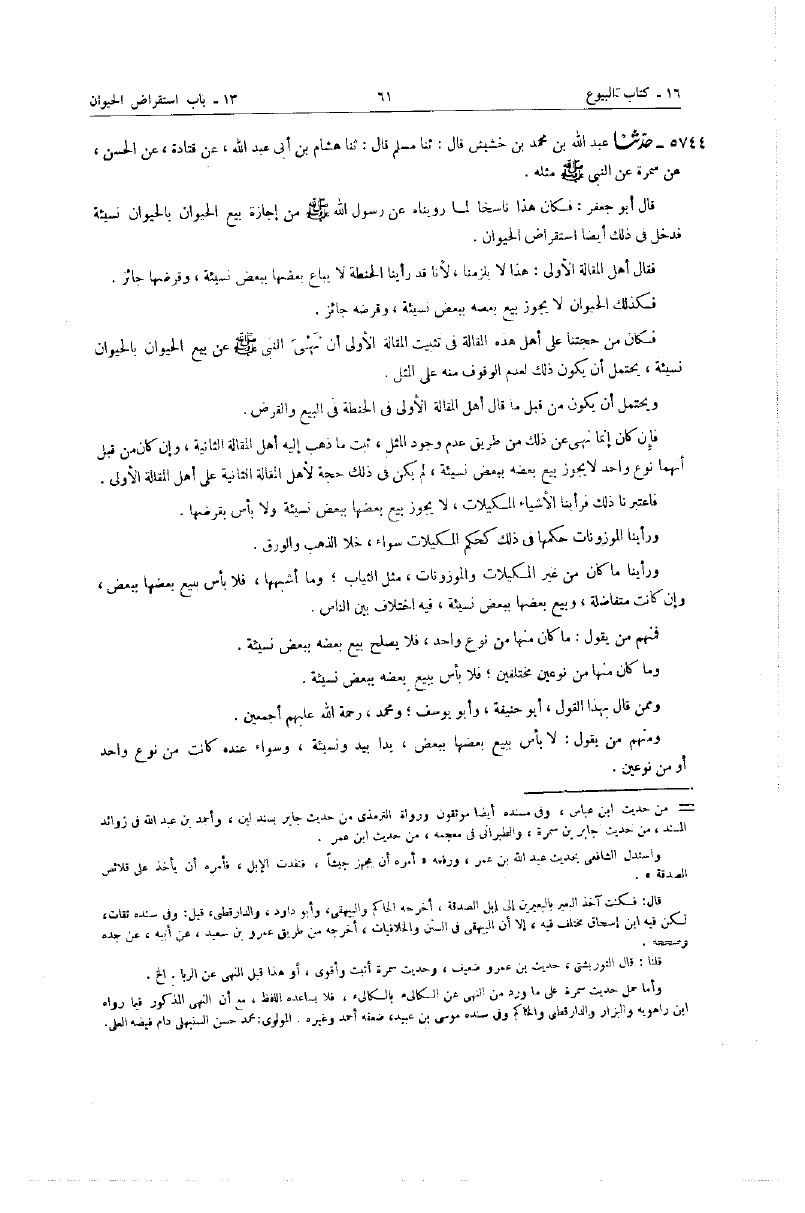 ١٦ ـ كتاب البيوع ٦١ ١٣ ـ باب استقراض الحيوان
٥٧٤٤ ـ حدثنا عبد الله بن محمد بن خشيش قال : ثنا مسلم قال : ثنا هشام بن أبى عبد الله ، عن قتادة ، عن الحسن ،
عن سمرة عن النبى ﷺ مثله .
قال أبو جعفر : فكان هذا ناسخا لما رويناه عن رسول الله ﷺ من إجازة بيع الحيوان بالحيوان نسيئة
فدخل فى ذلك أيضا استقراض الحيوان .
فقال أهل المقالة الأولى : هذا لا يلزمنا ، لأنا قد رأينا الحنطة لا يباع بعضها ببعض نسيئة ، وقرضها جائز .
فكذلك الحيوان لا يجوز بيع بعضه ببعض نسيئة ، وقرضه جائز .
فكان من حجتنا على أهل هذه المقالة فى تثبيت المقالة الأولى أن نَهْىَ النبى ﷺ عن بيع الحيوان بالحيوان
نسيئة ، يحتمل أن يكون ذلك لعدم الوقوف منه على المثل .
ويحتمل أن يكون من قبل ما قال أهل المقالة الأولى فى الحنطة فى البيع والقرض .
فإن كان إنما نهى عن ذلك من طريق عدم وجود المثل ، ثبت ما ذهب إليه أهل المقالة الثانية ، وإن كان من قبل
أنهما نوع واحد لا يجوز بيع بعضه ببعض نسيئة ، لم يكن فى ذلك حجة لأهل المقالة الثانية على أهل المقالة الأولى .
فاعتبرنا ذلك فرأينا الأشياء المكيلات ، لا يجوز بيع بعضها ببعض نسيئة ولا بأس بقرضها .
ورأينا الموزونات حكمها فى ذلك كحكم المكيلات سواء ، خلا الذهب والورق .
ورأينا ما كان من غير المكيلات والموزونات ، مثل الثياب ؛ وما أشبهها ، فلا بأس ببيع بعضها ببعض ،
وإن كانت متفاضلة ، وبيع بعضها ببعض نسيئة ، فيه اختلاف بين الناس .
فمنهم من يقول : ما كان منها من نوع واحد ، فلا يصلح بيع بعضه ببعض نسيئة .
وما كان منها من نوعين مختلفين ؛ فلا بأس ببيع بعضه ببعض نسيئة .
وممن قال بهذا القول ، أبو حنيفة ، وأبو يوسف ؛ ومحمد ، رحمة الله عليهم أجمعين .
ومنهم من يقول : لا بأس ببيع بعضها ببعض ، يدا بيد ونسيئة ، وسواء عنده كانت من نوع واحد
أو من نوعين .
= من حديث ابن عباس ، وفى مسنده أيضا موثقون ورواة الترمذى من حديث جابر بسند لين ، وأحمد بن عبد الله فى زوائد
المسند ، من حديث جابر بن سمرة ، والطبرانى فى معجمه ، من حديث ابن عمر .
واستدل الشافعى بحديث عبد الله بن عمر ، ورفعه « أمره أن يجهز جيشاً ، فنفدت الإبل ، فأمره أن يأخذ على قلائص
الصدقة » .
قال : فكنت آخذ البعير بالبعيرين إلى إبل الصدقة ، أخرجه الحاكم والبيهقى، وأبو داود ، والدارقطى، قيل: وفى سنده ثقات،
لكن فيه ابن إسحاق مختلف فيه ، إلا أن البيهقى فى السنن والخلافيات ، أخرجه من طريق عمرو بن سعيد ، عن أبيه ، عن جده
وصححه .
قلنا : قال التوربشتى ، حديث بن عمرو ضعيف ، وحديث سمرة أثبت وأقوى ، أو هذا قبل النهى عن الربا . الخ .
وأما حمل حديث سمرة على ما ورد من النهى عن الكالىء بالكالىء ، فلا يساعده اللفظ ، مع أن النهى المذكور فيما رواه
ابن راهويه والبزار والدارقطى والحاكم وفى سنده موسى بن عبيد، ضعفه أحمد وغيره . المولوى: محمد حسن السنبهلى دام فيضه العلى.